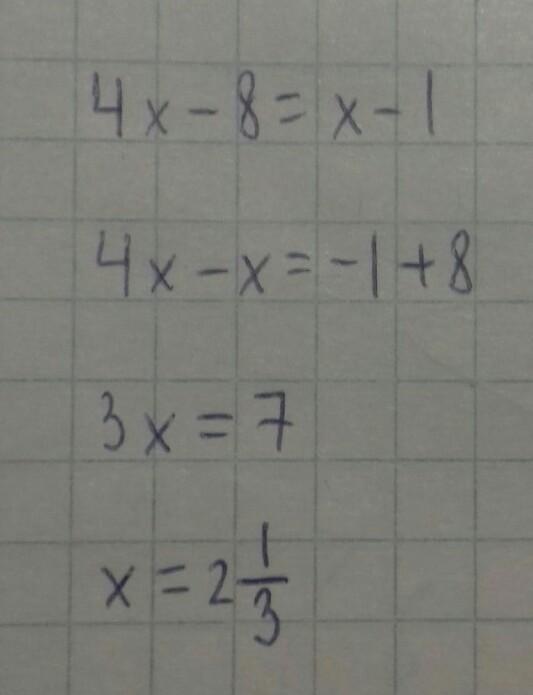 4x - 8 = x - 1
4x - x = -1 + 8
3x = 7
x = 2 1/3